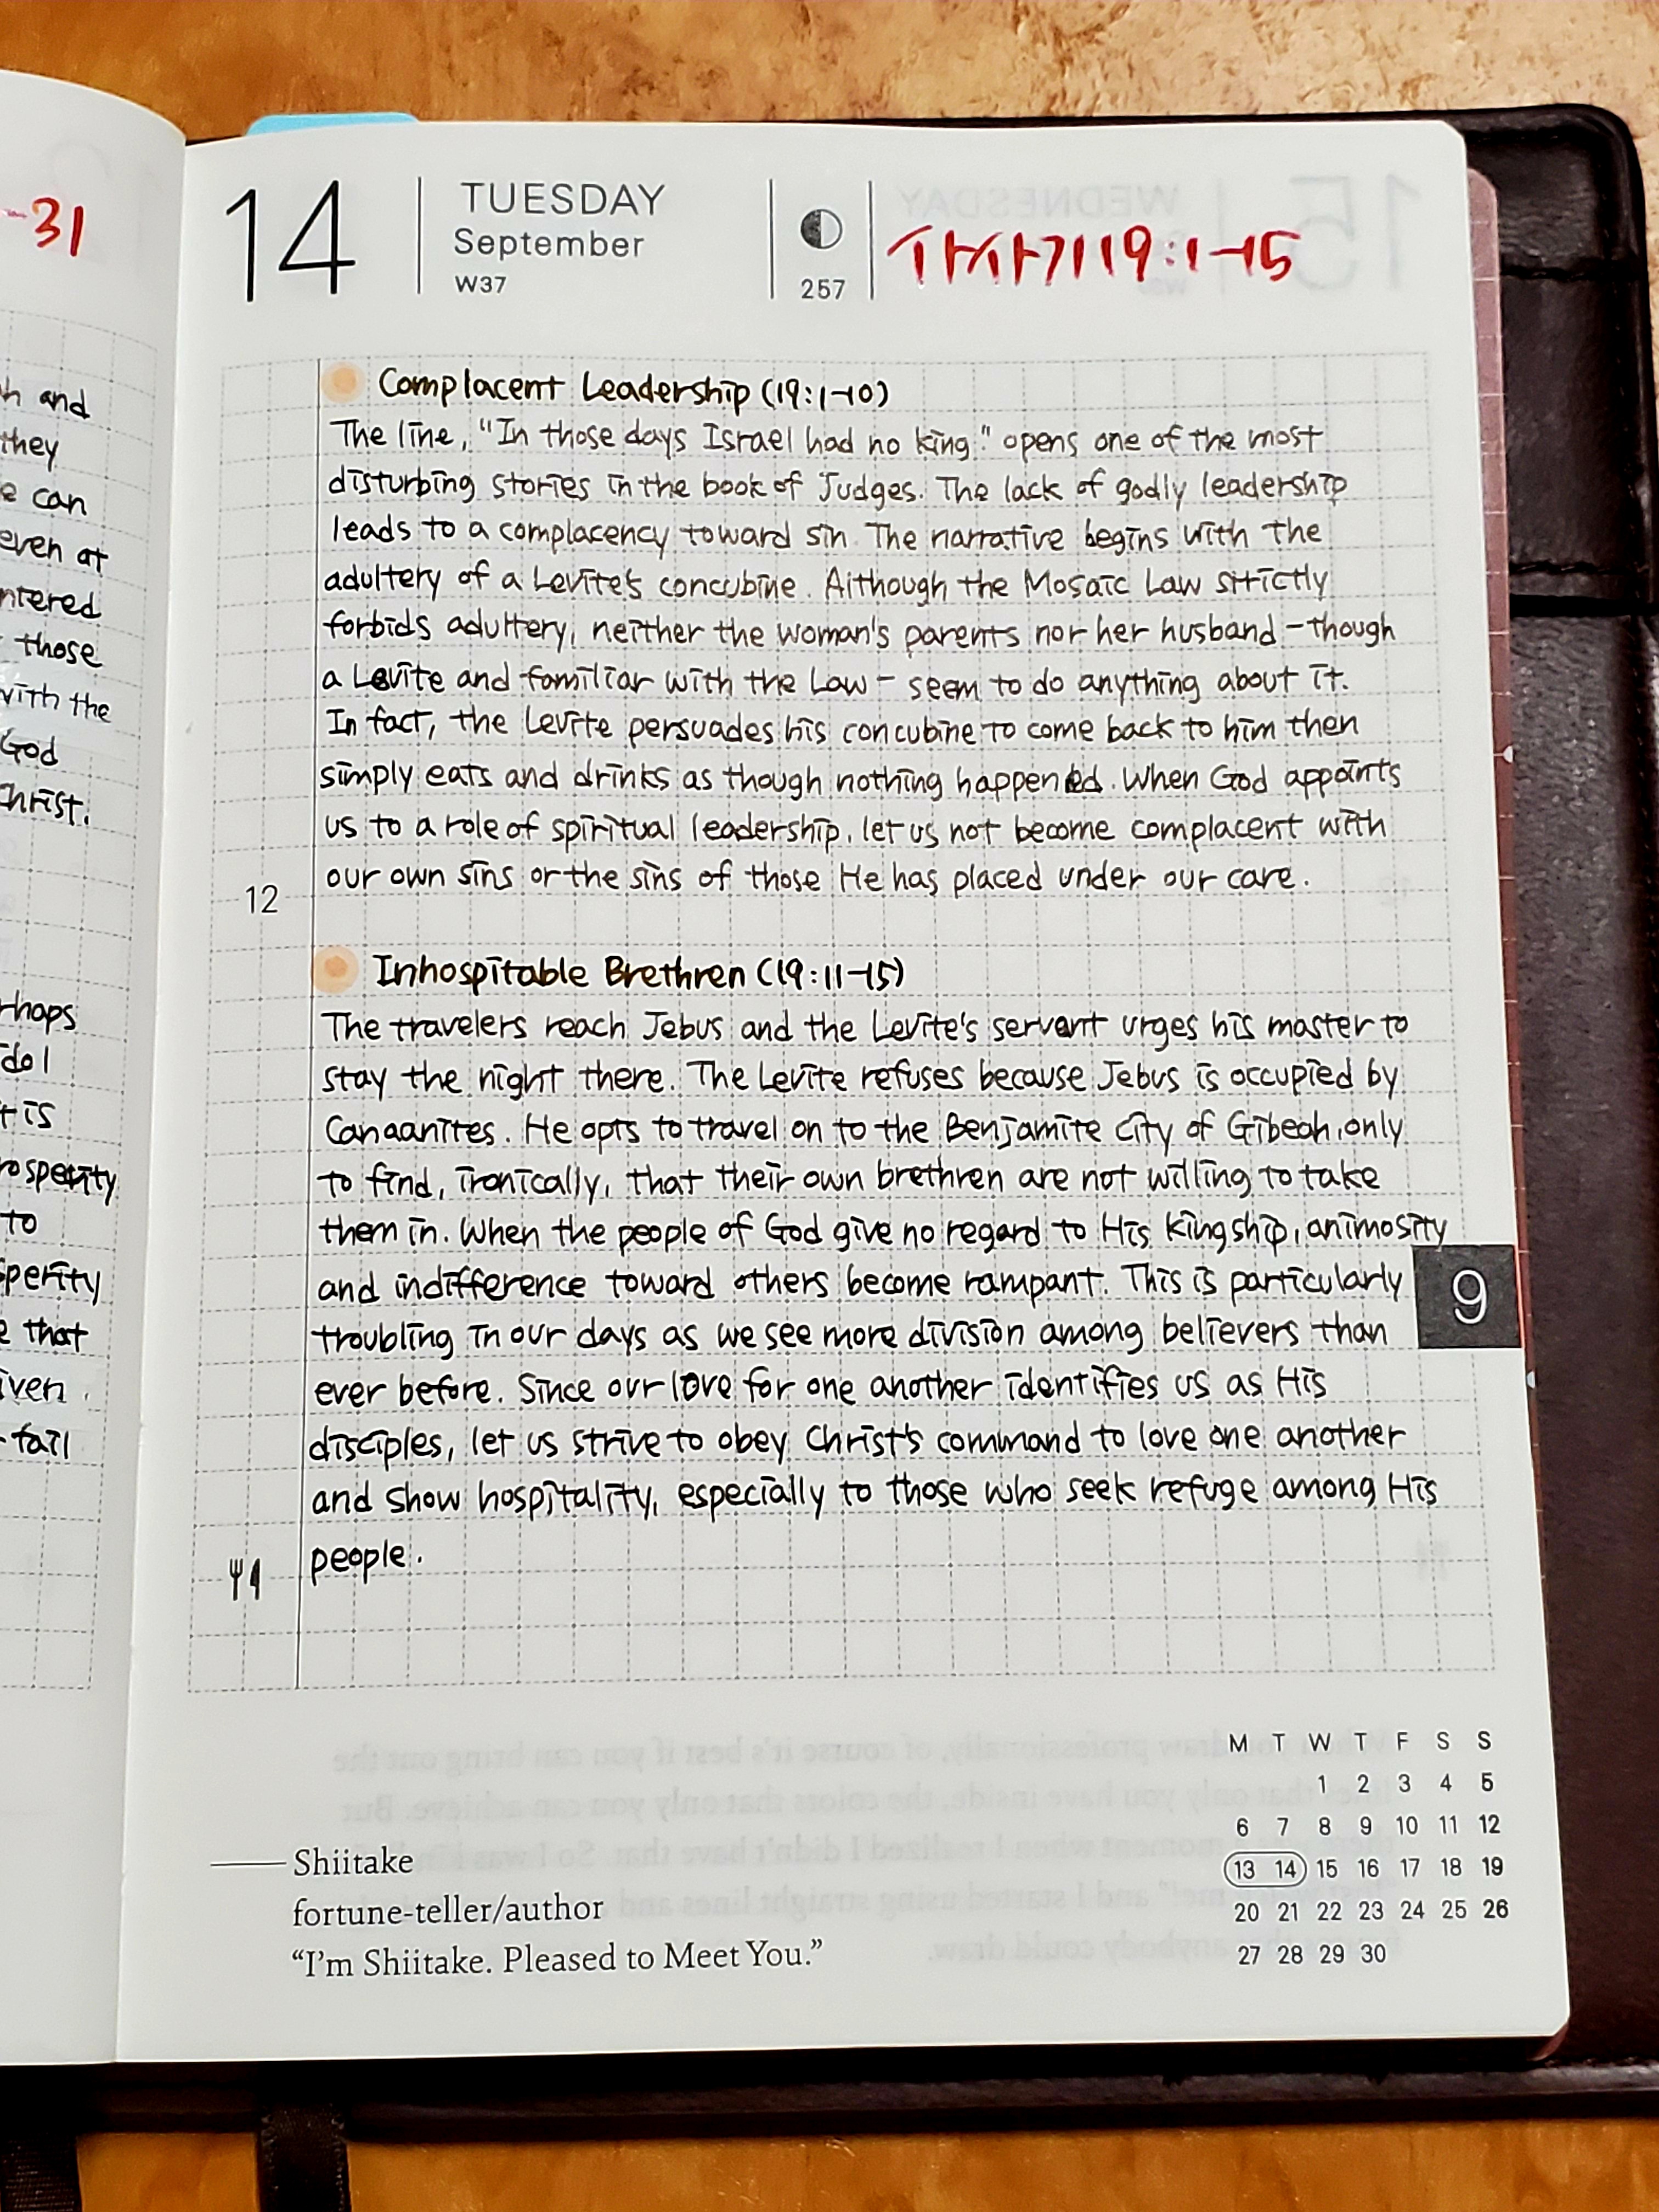 -31
and
they
can
even at
those
with the
God
Christ.
is
to
that
fail
14
TUESDAY
September
W37
257
사사기 19:1-15
Complacent Leadership (19:1-10)
The line, "In those days Israel had no king." opens one of the most
disturbing stories in the book of Judges. The lack of godly leadership
leads to a complacency toward sin. The narrative begins with the
adultery of a Levite's concubine. Although the Mosaic Law strictly
forbids adultery, neither the woman's parents nor her husband - though
a Levite and familiar with the Law - seem to do anything about it.
In fact, the Levite persuades his concubine to come back to him then
simply eats and drinks as though nothing happened. When God appoints
us to a role of spiritual leadership, let us not become complacent with
our own sins or the sins of those He has placed under our care.
12
Inhospitable Brethren (19:11-15)
The travelers reach Jebus and the Levite's servant urges his master to
stay the night there. The Levite refuses because Jebus is occupied by
Canaanites. He opts to travel on to the Benjamite city of Gibeah, only
to find, ironically, that their own brethren are not willing to take
them in. When the people of God give no regard to His kingship, animosity
and indifference toward others become rampant. This is particularly
9
troubling in our days as we see more division among believers than
ever before. Since our love for one another identifies us as His
disciples, let us strive to obey Christ's command to love one another
and show hospitality, especially to those who seek refuge among His
people.
Shiitake
fortune-teller/author
“I'm Shiitake. Pleased to Meet You.”
M T W T F S S
1 2 3 4 5
6 7 8 9 10 11 12
13 14 15 16 17 18 19
20 21 22 23 24 25 26
27 28 29 30